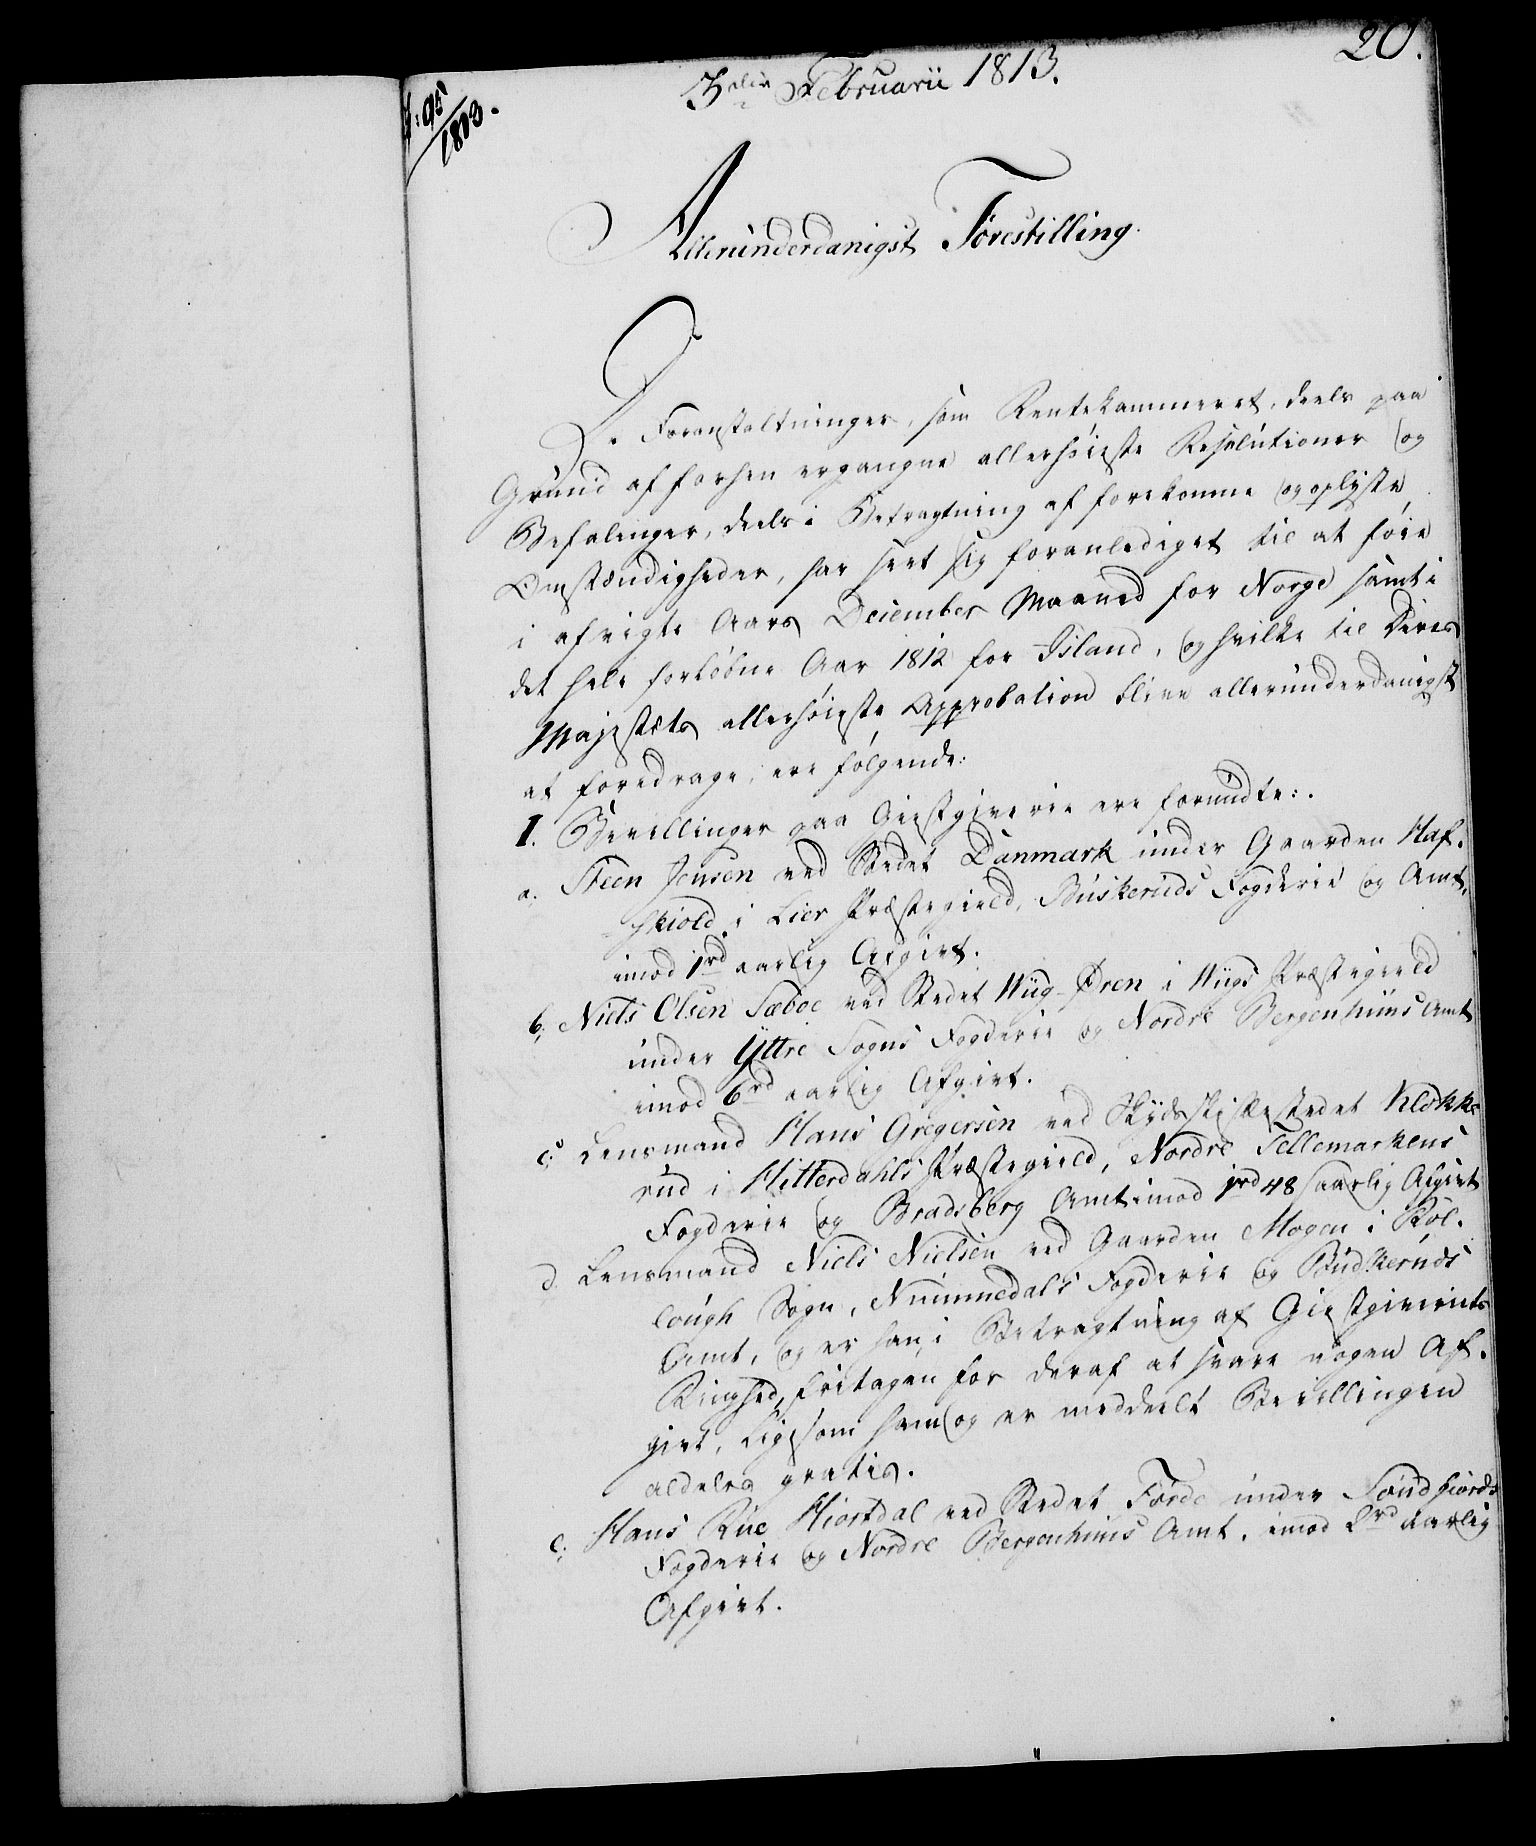 20.
3die Februarii 1813.
95/1813.
Allerunderdanigst Forestilling.
De Foranstaltninger, som Rentekammeret, deels paa
Grund af forhen ergangne allerhöieste Resolutioner og
Befalinger, deels i Betragtning af forekomne og oplyste
Omstændigheder, har seet sig foranlediget til at föie
i afvigte Aars December Maaned for Norge samt i
det hele forløbne Aar 1812 for Island, og hvilke til Deres
Majestæts allerhöieste Approbation blive allerunderdanigst
at foredrage, ere følgende:
I. Bevillinger paa Giestgiverie ere forundte:.
a. Steen Jensen ved Stedet Danmark under Gaarden Haf-
skiold i Lier Præstegield, Buskeruds Fogderie og Amt,
imod 1rd aarlig Afgivt.
b, Niels Olsen Sæboe ved Stedet Wiig-Øren i Wiigs Præstegield
under Yttre Sogns Fogderie og Nordre Bergenhuus Amt
imod 6rd aarlig Afgivt.
c; Lensmand Hans Gregersen ved Skydsskiftestedet Klokke
rud i Hitterdahls Præstegield, Nordre Tellemarkens
Fogderie og Bradsberg Amt imod 1rd 48 s aarlig Afgivt
d. Lensmand Niels Nielsen ved Gaarden Mogen i Rol-
lough Sogn, Nummedals Fogderie og Budskeruds
Amt, og er han, i Betragtning af Giestgiveriets
Ringhed, fritagen for deraf at svare nogen Af-
givt, ligesom ham og er meddeelt Bevillingen
aldeles gratis.
e; Hans Rue Hiortdal ved Stedet Førde under Søndfiords
Fogderie og Nordre Bergenhuus Amt, imod 2rd aarlig
Afgivt.